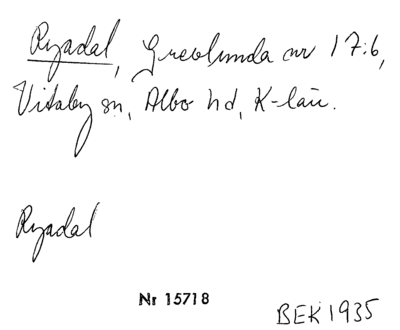 Ryadal, Grevlunda nr 17:6,
Vitaby sn, Albo hd, K-län.
Ryadal
Nr 15718
BEK 1935